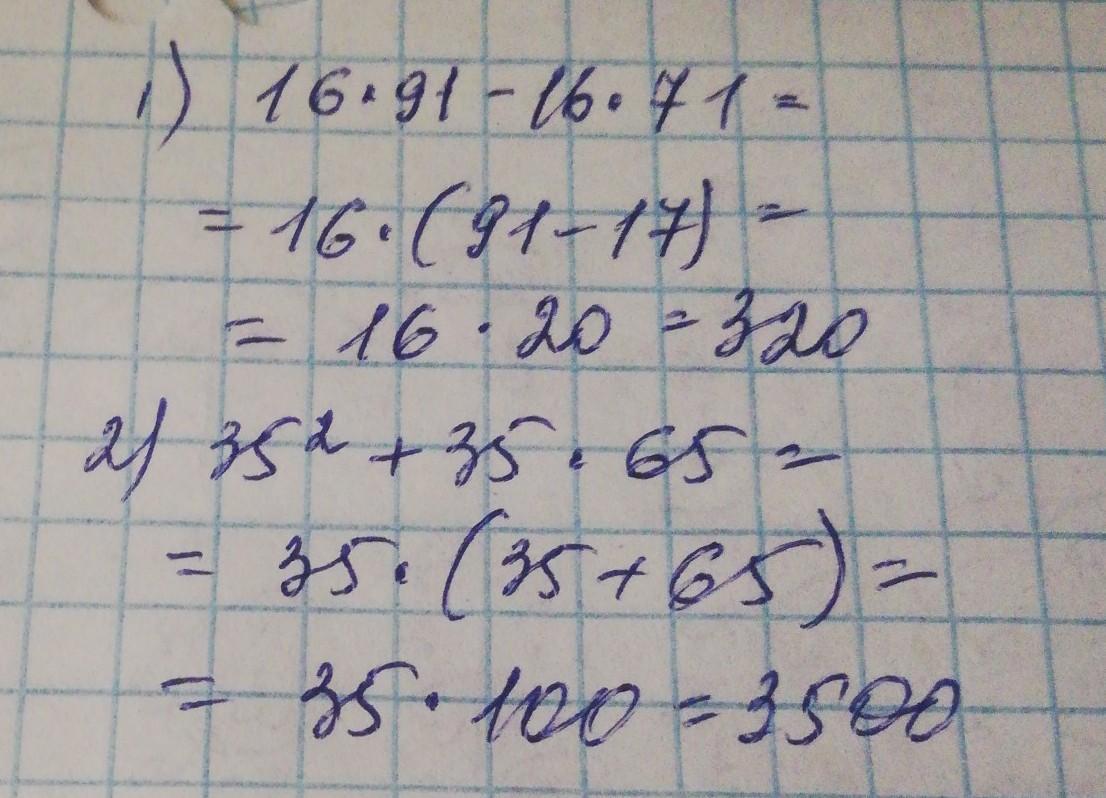 1) 16·91-16·71=
=16·(91-17)=
= 16·20=320
2) 35²+35·65=
= 35·(35+65)=
= 35·100=3500